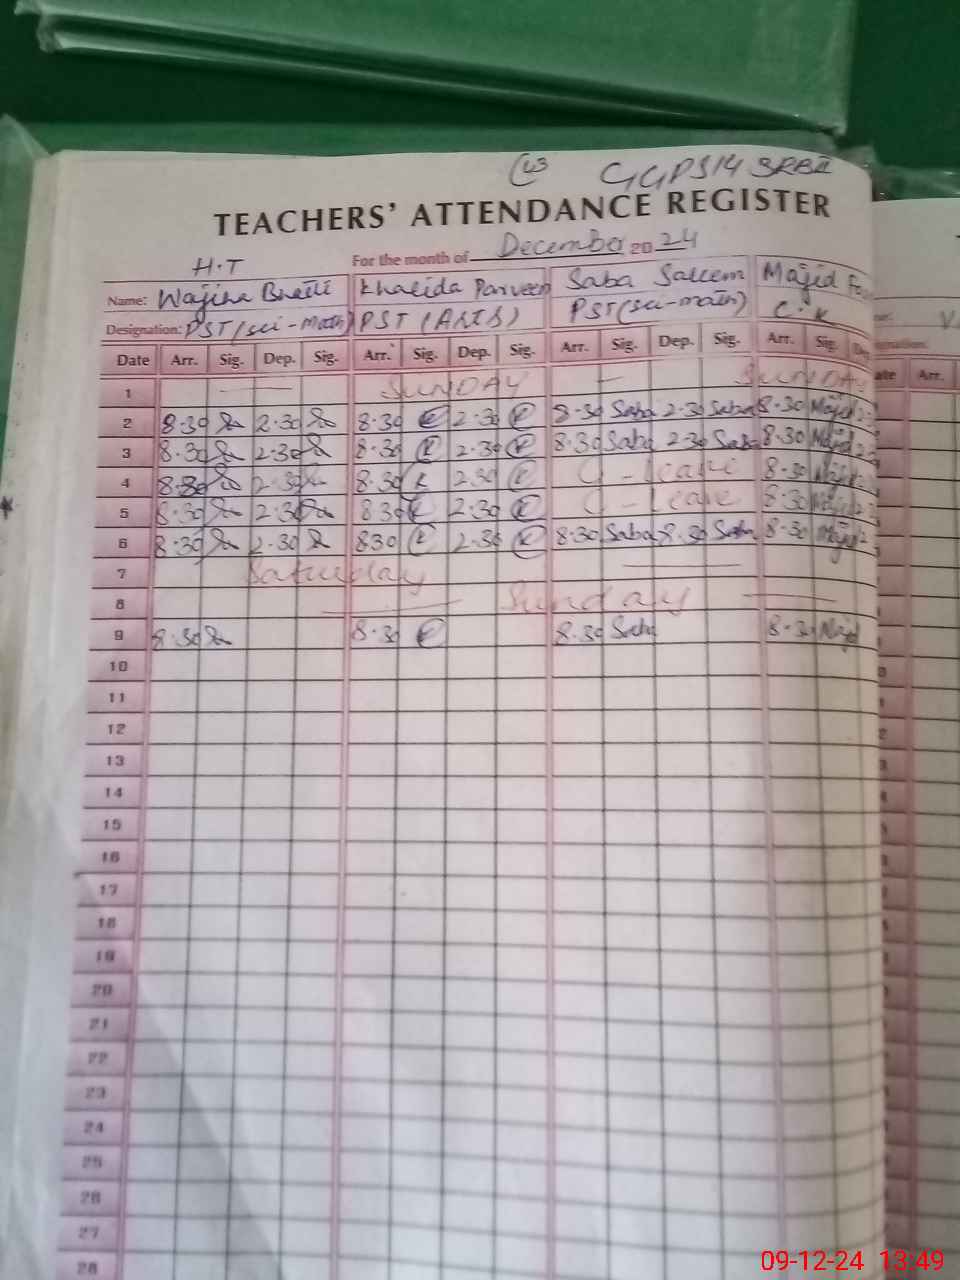 43 GGPS 14 SRBA
TEACHERS' ATTENDANCE REGISTER
H.T For the month of December 20 24
Name: Wajiha Bhatti Khalida Parveen Saba Saleem Majid
Designation: PST (sci-math) PST (ARTS) PST (sci-math) C.K
Date Arr. Sig. Dep. Sig. Arr. Sig. Dep. Sig. Arr. Sig. Dep. Sig. Arr. Sig. Dep
1 SUNDAY SUNDAY
2 8.30 2.30 8.30 2.30 8.30 Saba 2.30 Saba 8.30 Majid
3 8.30 2.30 8.30 2.30 8.30 Saba 2.30 Saba 8.30 Majid
4 8.30 2.30 8.30 2.30 C-leave 8.30 Majid
5 8.30 2.30 830 2.30 C-leave 8.30 Majid
6 8.30 2.30 830 2.30 8.30 Saba 8.30 Saba 8.30 Majid
7 Saturday
8 Sunday
9 8.30 8.30 8.30 Saba 8.30 Majid
10
11
12
13
14
15
16
17
18
19
20
21
22
23
24
25
26
27
28
09-12-24 13:49